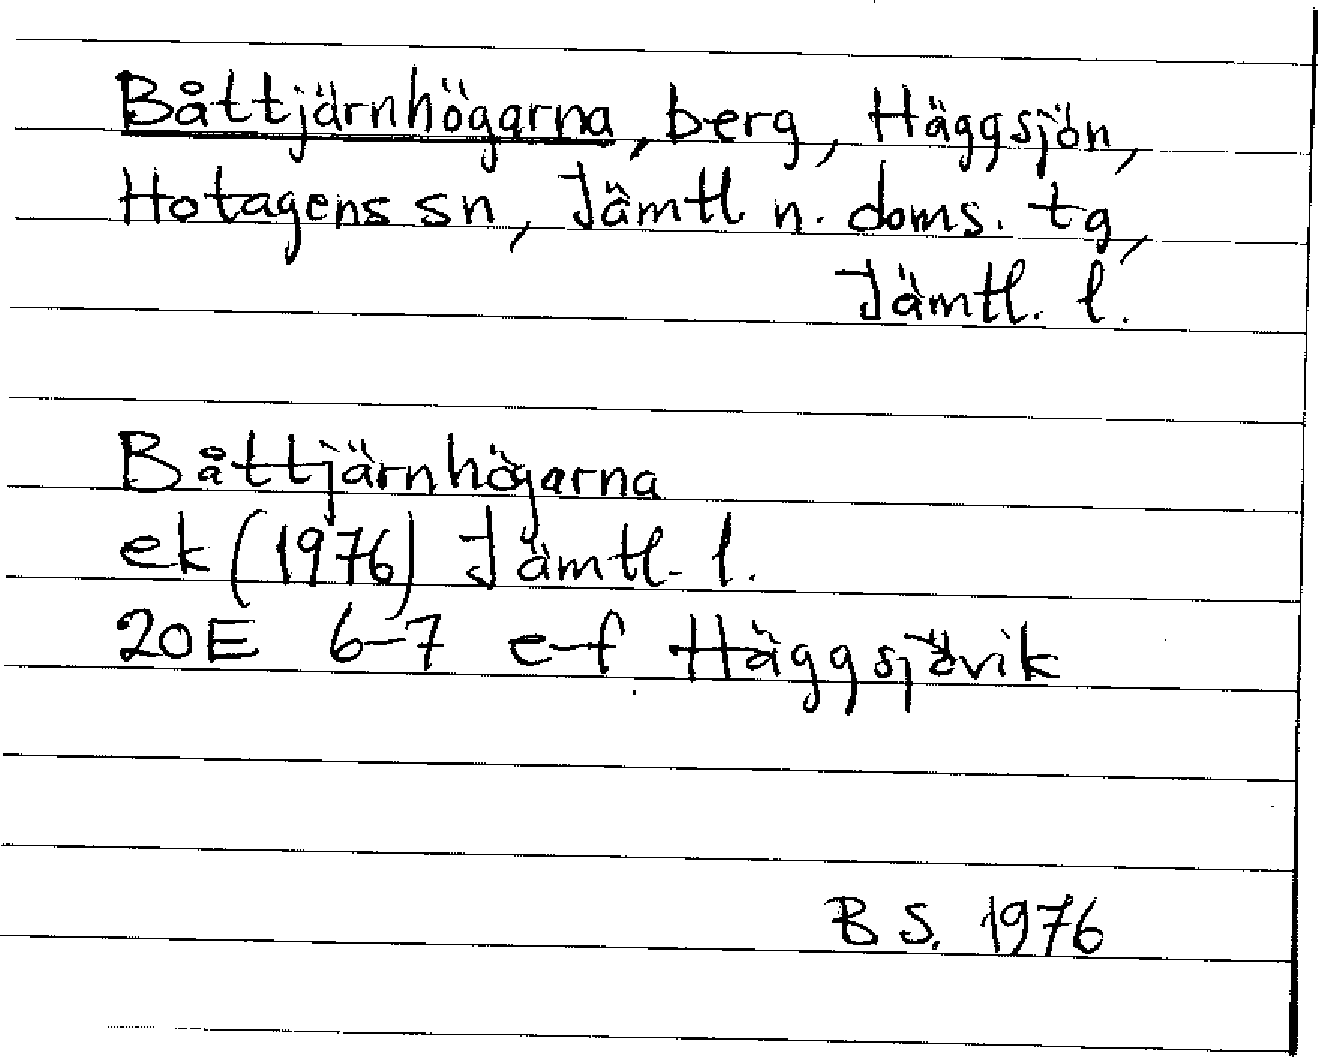 Båttjärnhögarna, berg, Häggsjön,
Hotagens sn, Jämtl n. doms. tg,
Jämtl. l.
Båttjärnhögarna
ek (1976) Jämtl. l.
20E 6-7 e-f Häggsjövik
B S. 1976